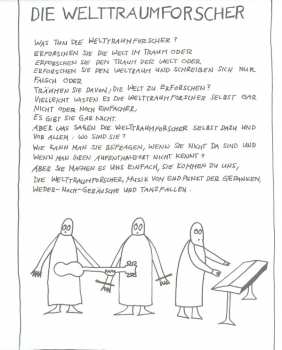 DIE WELTTRAUMFORSCHER
WAS TUN DIE WELTTRAUMFORSCHER?
ERFORSCHEN SIE DIE WELT IM TRAUM ODER
ERFORSCHEN SIE DEN TRAUM DER WELT ODER
ERFORSCHEN SIE DEN WELTRAUM UND SCHREIBEN SICH NUR
FALSCH ODER
TRÄUMEN SIE DAVON, DIE WELT ZU ERFORSCHEN?
VIELLEICHT WISSEN ES DIE WELTTRAUMFORSCHER SELBST GAR
NICHT ODER NOCH EINFACHER,
ES GIBT SIE GAR NICHT.
ABER WAS SAGEN DIE WELTTRAUMFORSCHER SELBST DAZU UND
VOR ALLEM: WO SIND SIE?
WIE KANN MAN SIE BEFRAGEN, WENN SIE NICHT DA SIND UND
WENN MAN IHREN AUFENTHALTSORT NICHT KENNT?
ABER SIE MACHEN ES UNS EINFACH, SIE KOMMEN ZU UNS,
DIE WELTTRAUMFORSCHER, MUSIK VOM ENDPUNKT DER GEDANKEN,
WEDER-NOCH-GERÄUSCHE UND TANZFALLEN.